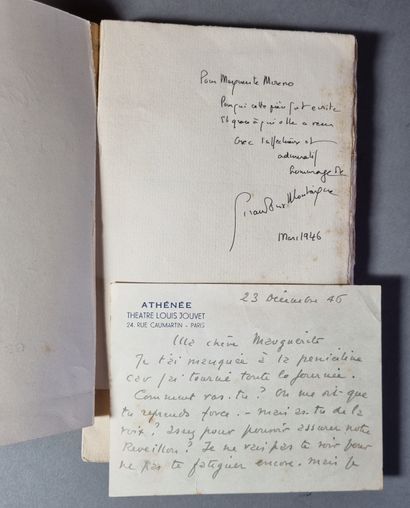 Pour Marguerite Moreno
Pour qui cette pièce fut écrite
Et grâce à qui elle a vécu
avec l'affectueux et
admiratif
hommage de
Mars 1946
ATHÉNÉE
THEATRE LOUIS JOUVET
24, RUE CAUMARTIN - PARIS
23 Décembre 45
Ma chère Marguerite
Je t'ai manquée à la
car j'ai tourné toute la journée.
Comment vas-tu? On me dit que
tu reprends force - mais as-tu de la
voix? assez pour pouvoir assurer notre
Reveillon? Je ne vais pas te voir pour
ne pas te fatiguer encore. mais je